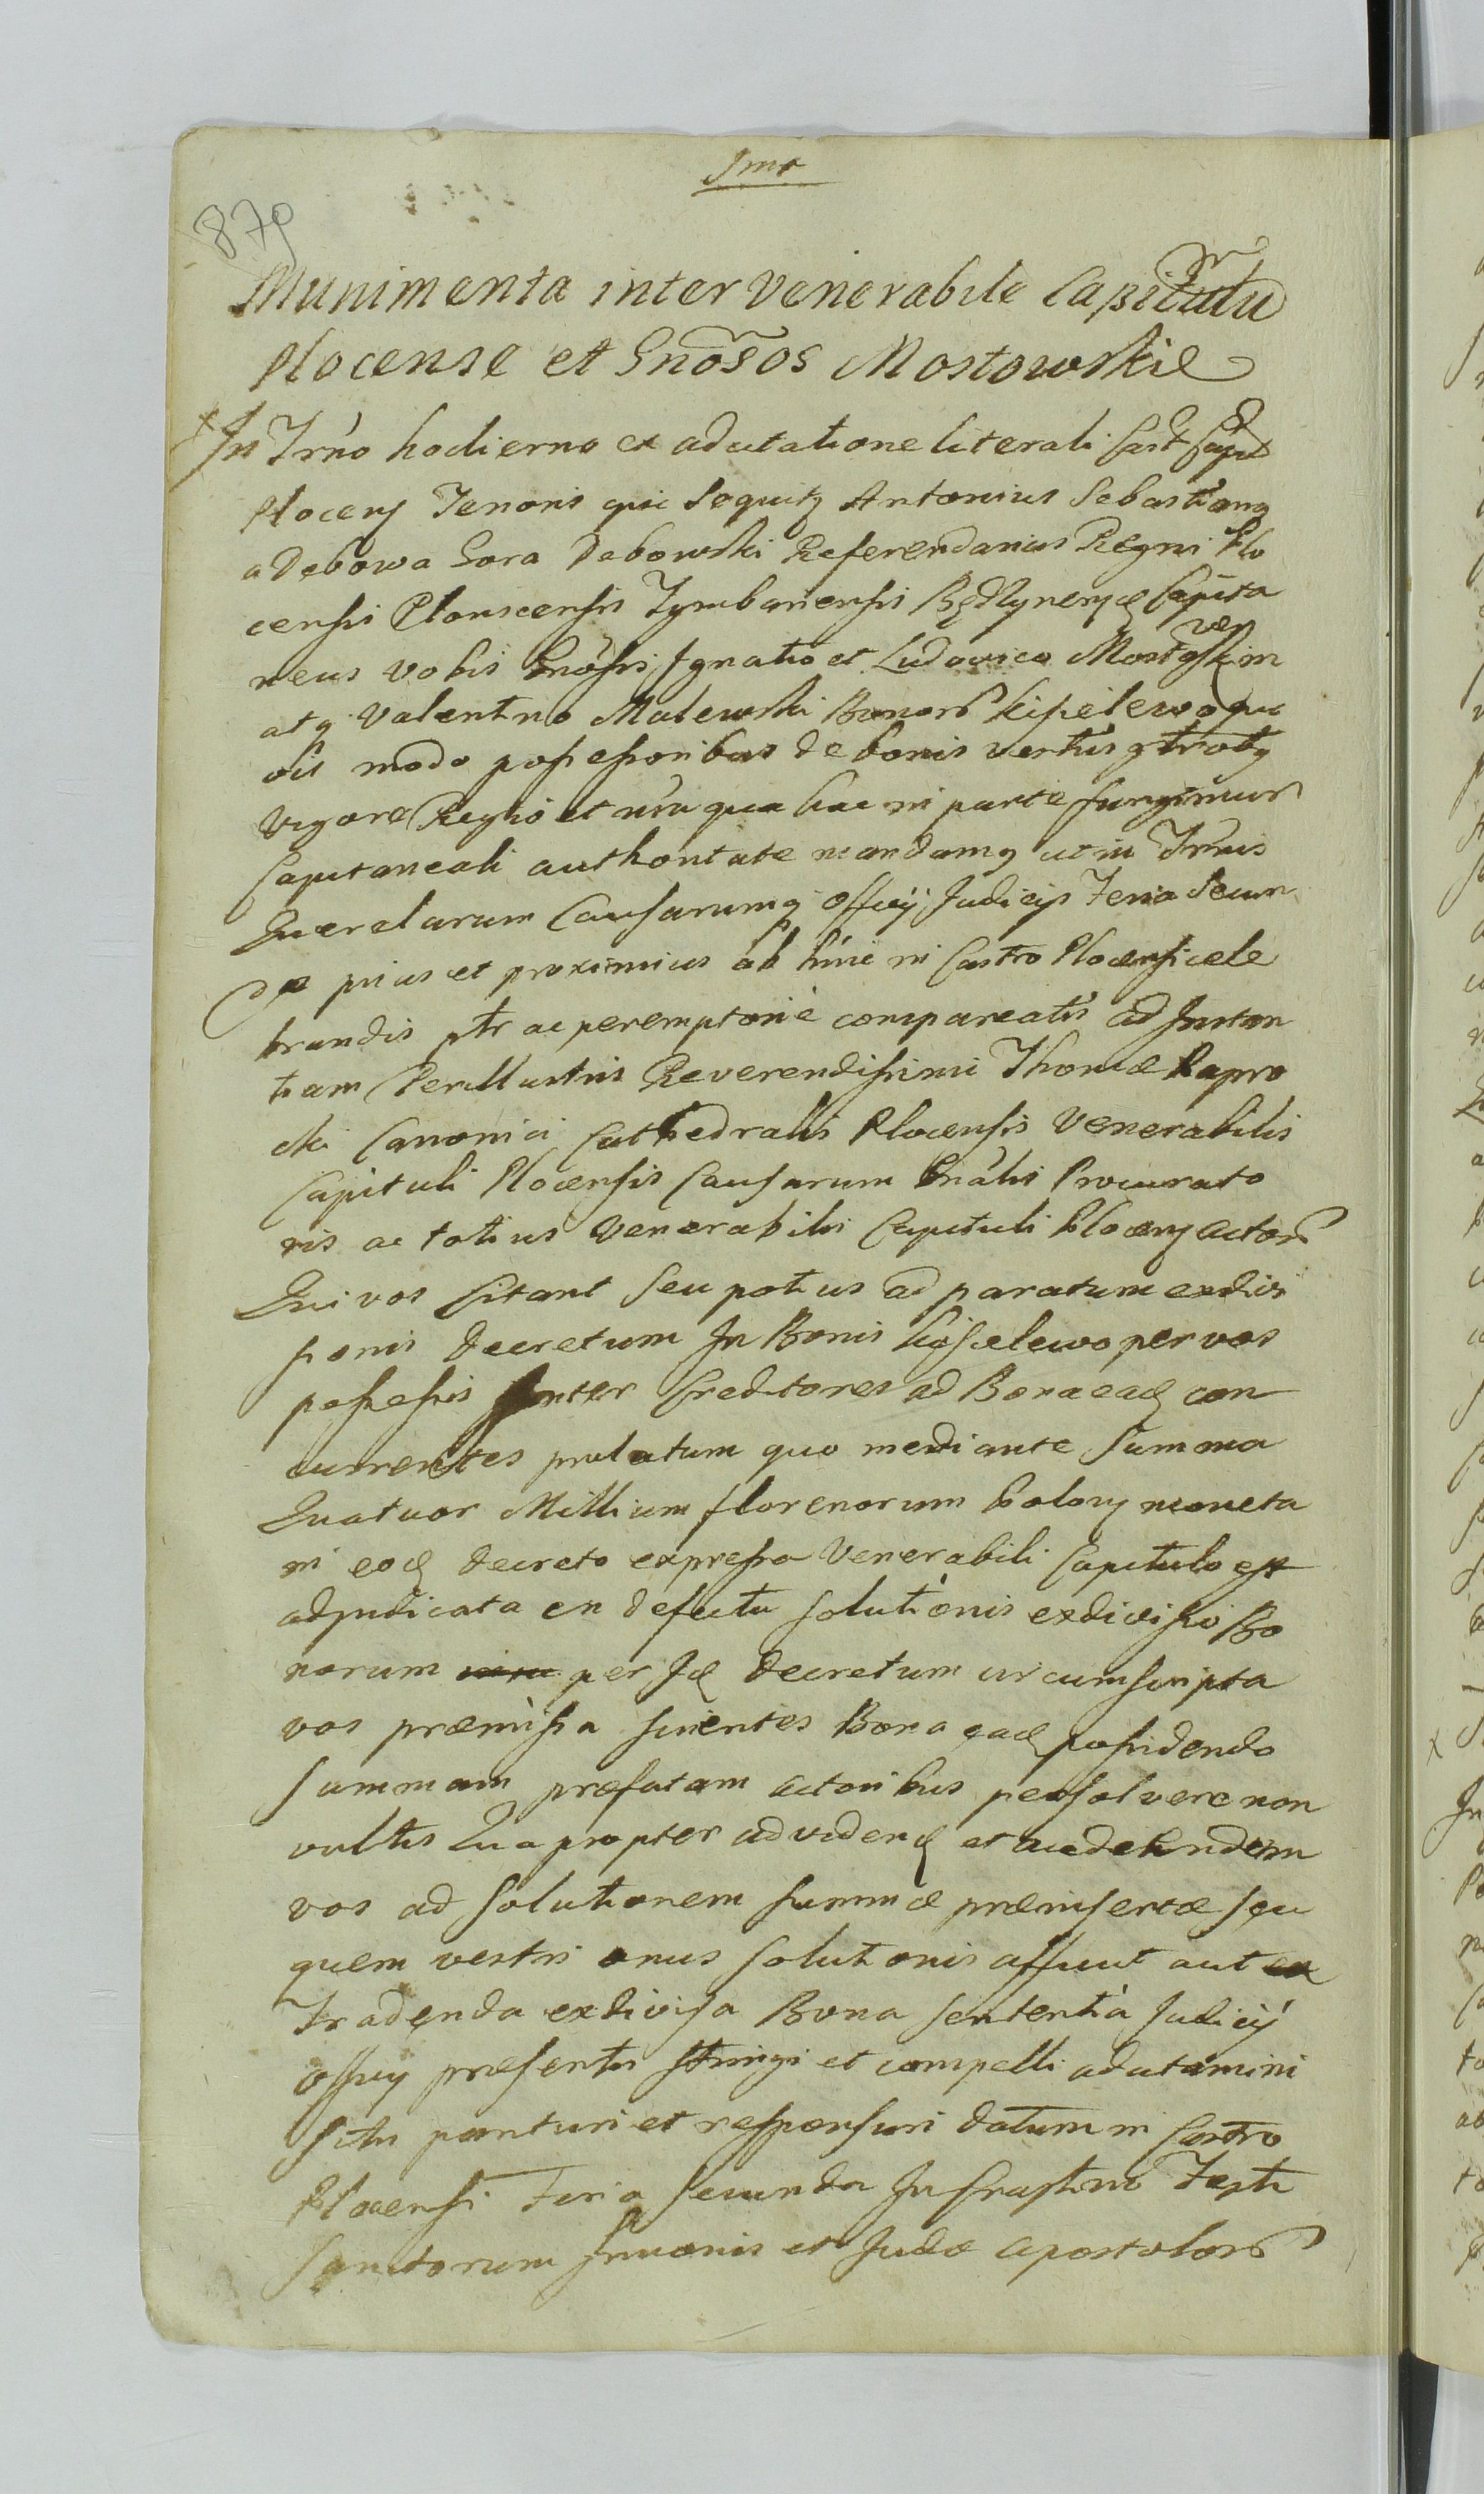 1mo
879
Munimenta inter Venerabile Capitulu
Plocense et Gnosos Mostowskie
In Trno hodierno ex adcitatione literali Cast Capit
Plocens Tenoris qui sequitq Antonius Sebastianq
a Debowa Gora Debowski Referendarius Regni Plo
censis Plonscensis Tymbarcensis Capita
neus vobis Gnosis Ignatio et Ludovico Mostowskim
atq Valentino Malewski Bonorum Kisielewo qui
vis modo possessoribus de bonis vestris gtratq
Vigore Regio et nra qua hac in parte fungimur
Capitaneali authoritate mandamq ut in Trnis
Querelarum Causarumq Officy Judicijs Feria Secun
da prius et proximius ab hinc in Castro Plocensi cele
brandis ptr ac peremptorie compareatis ad Instan
tiam Perillustris Reverendissimi Thomæ Rapro
cki Canonici Cathedralis Plocensis Venerabilis
Capituli Plocensis Causarum Gnalis Procurato
ris ac totius Venerabilis Capituli Plocens actor
Qui vos citant seu potius ad paratum exdivi
sionis Decretum In Bonis Kisielewo per vos
possessis Inter Creditores ad Bona ead con
currentes prolatum quo mediante Summa
Quatuor Millium florenorum Polon moneta
in eod Decreto expressa Venerabili Capitulo est
adjudicata in defectu solutionis exdivisio Bo
norum per Id Decretum circumscripta
vos præmissa scientes Bona ead possidendo
summam præfatam actoribus persolvere non
vultis Quapropter ad vidend et audiendum
vos ad solutionem summæ præinsertæ seu
quem vestri onus solutionis afficit aut
Tradenda exdivisa Bona sententia Judicij
officy præsentis stringi et compelli adcitamini
sitis parituri et responsuri Datum in Castro
Plocensi Feria Secunda In Crastino Festi
Sanctorum Simonis et Judæ Apostolor